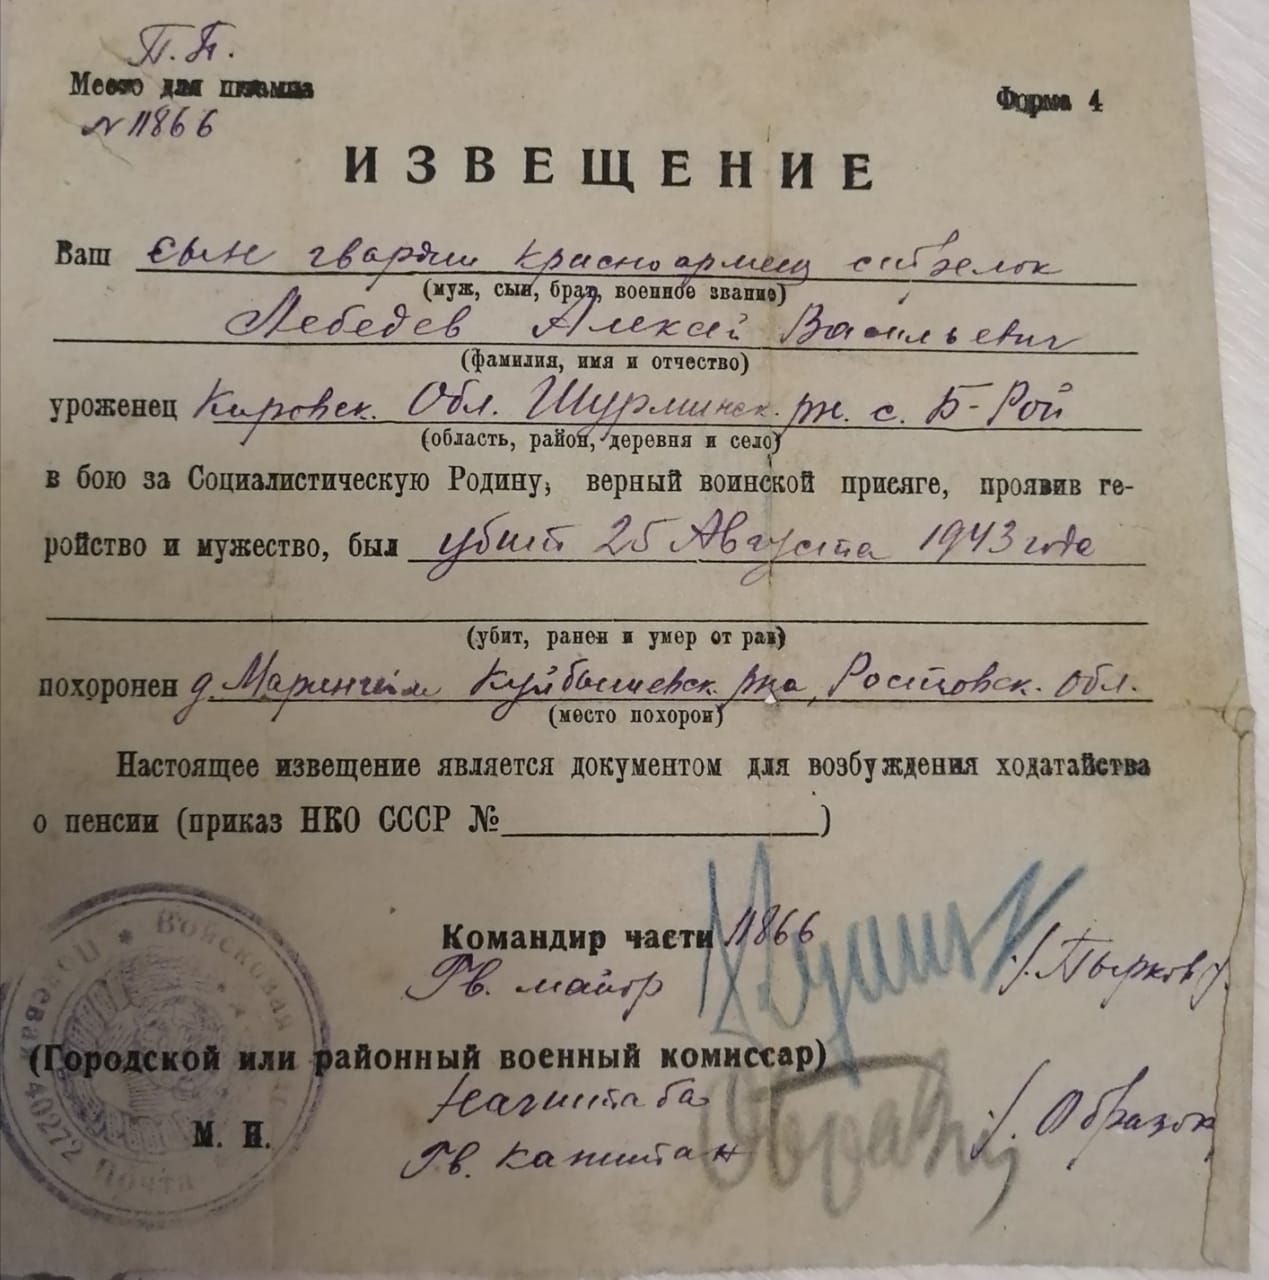 П.П.
Место для штампа
№ 11866
Форма 4
ИЗВЕЩЕНИЕ
Ваш сын гвардии красноармеец стрелок
(муж, сын, брат, военное звание)
Лебедев Алексей Васильевич
(фамилия, имя и отчество)
уроженец Кировск. Обл. Шурминск. рн. с. Б-Рой
(область, район, деревня и село)
в бою за Социалистическую Родину, верный воинской присяге, проявив ге-
ройство и мужество, был убит 25 Августа 1943 года
(убит, ранен и умер от ран)
похоронен д. Куйбышевск. р-на, Ростовск. обл.
(место похорон)
Настоящее извещение является документом для возбуждения ходатайства
о пенсии (приказ НКО СССР №)
Командир части 11866
Гв. майор /Пырков/
(Городской или районный военный комиссар)
Начштаба
Гв. капитан
М. П.
Войсковая
Полевая
40272
Почта